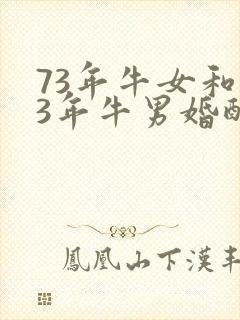 73年牛女和
3年牛男婚配
鳳凰山下漢丰